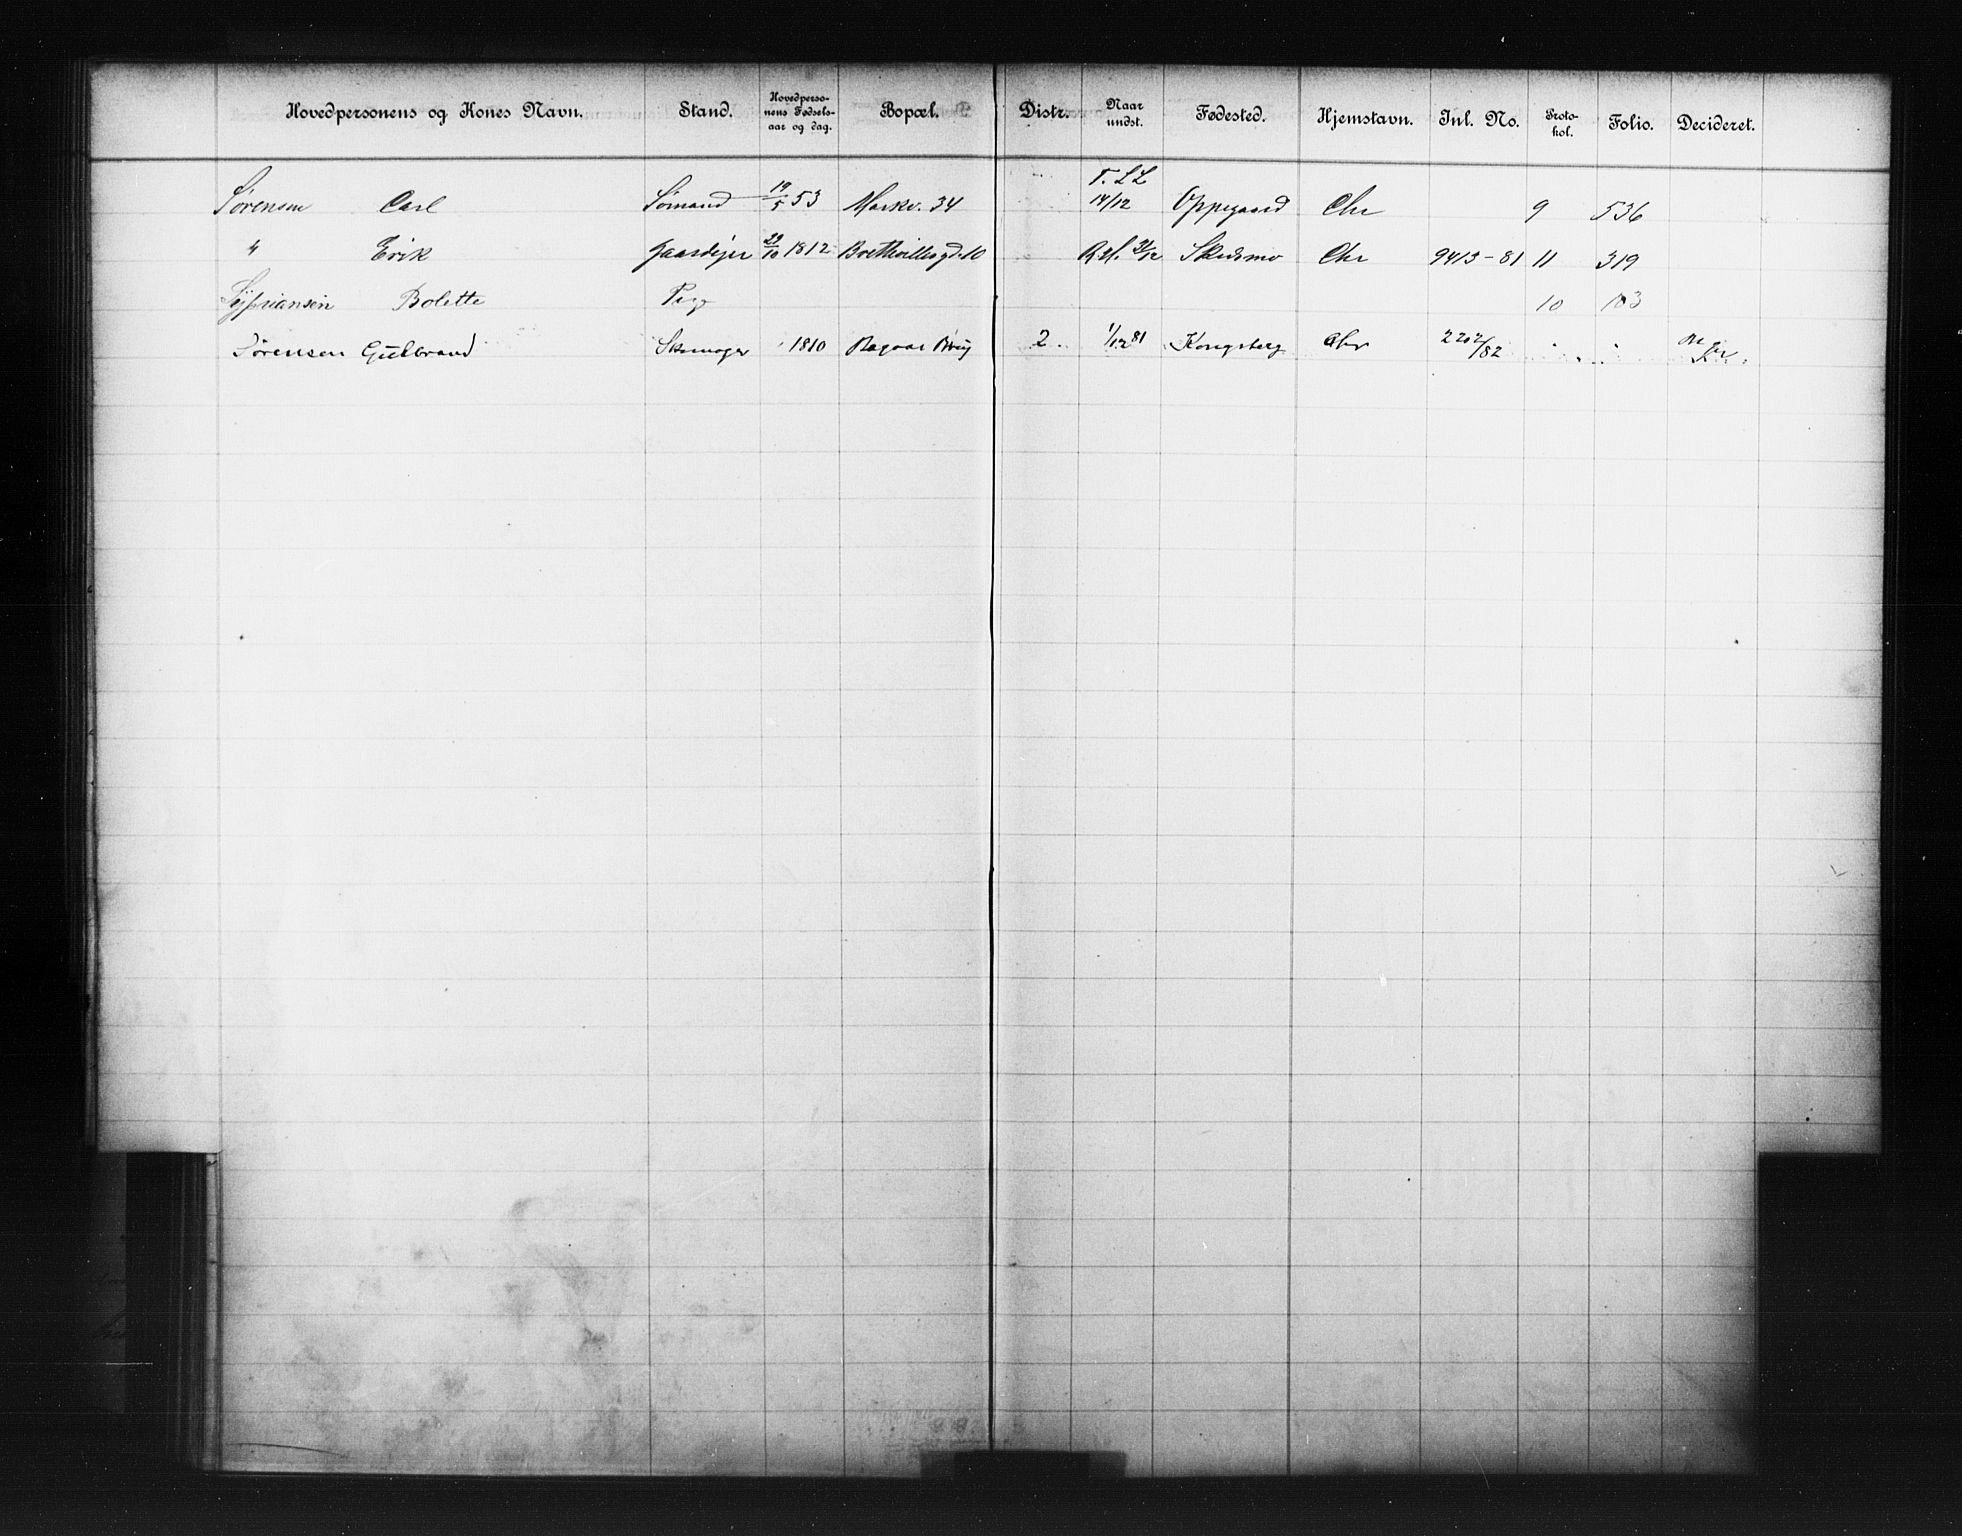 Hovedpersonens og Kones Navn. Stand. Hovedpersonens Fødselsaar og dag. Bopæl. Distr. Naar undst. Fødested. Hjemstavn. Inl. No. Protokol. Folio. Decideret.
Sørensen Carl Sømand 19/5 53 Markv. 34 F. LL 14/12 Oppegaard Chr 9 536
" Erik Gaardejer 29/10 1812 gd. 10 31/12 Skedsmo Chr 9413-81 11 319
Sypriansen Bolette Pige 10 103
Sørensen Gulbrand Skomager 1810 2. 1/12 81 Kongsberg Chr 2202/82